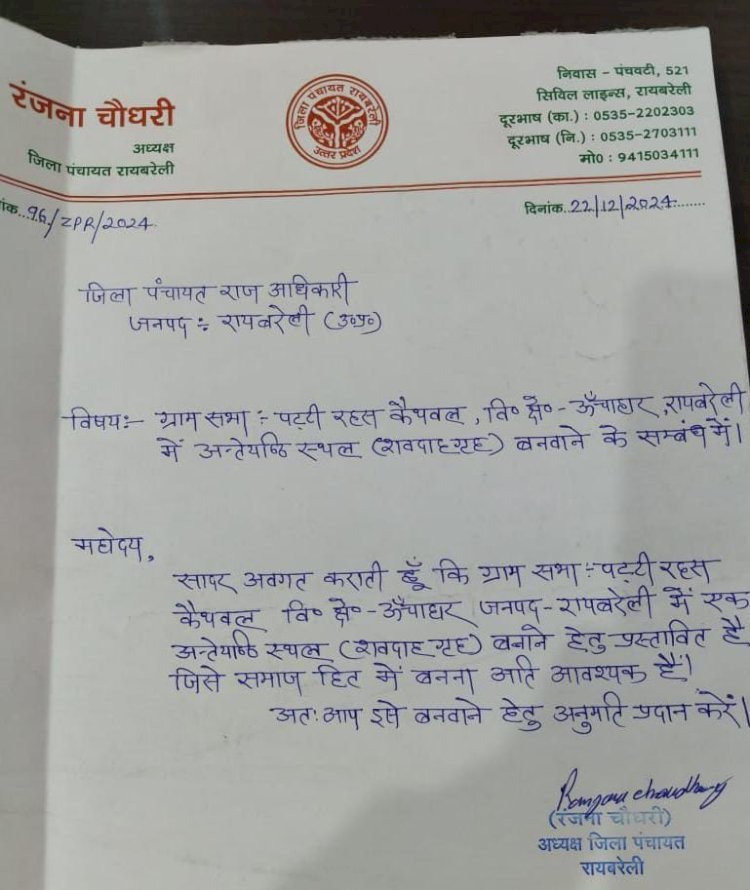 रंजना चौधरी
अध्यक्ष
जिला पंचायत रायबरेली
जिला पंचायत रायबरेली
उत्तर प्रदेश
निवास - पंचवटी, 521
सिविल लाइन्स, रायबरेली
दूरभाष (का.) : 0535-2202303
दूरभाष (नि.) : 0535-2703111
मो0 : 9415034111
ांक..96/ZPR/2024
दिनांक..22/12/2024.......
जिला पंचायत राज अधिकारी
जनपद :- रायबरेली (उ०प्र०)
विषय:- ग्राम सभा :- पट्टी रहस कैथवल, वि० क्षे० - ऊँचाहार, रायबरेली
में अन्तेयष्ठि स्थल (शवदाह गृह) बनवाने के सम्बंध में।
महोदय,
सादर अवगत कराती हूँ कि ग्राम सभा :- पट्टी रहस
कैथवल वि० क्षे० - ऊँचाहार जनपद - रायबरेली में एक
अन्तेयष्ठि स्थल (शवदाह गृह) बनाने हेतु प्रस्तावित है
जिसे समाज हित में बनना अति आवश्यक है।
अतः आप इसे बनवाने हेतु अनुमति प्रदान करें।
Ranjana Choudhary
(रंजना चौधरी)
अध्यक्ष जिला पंचायत
रायबरेली